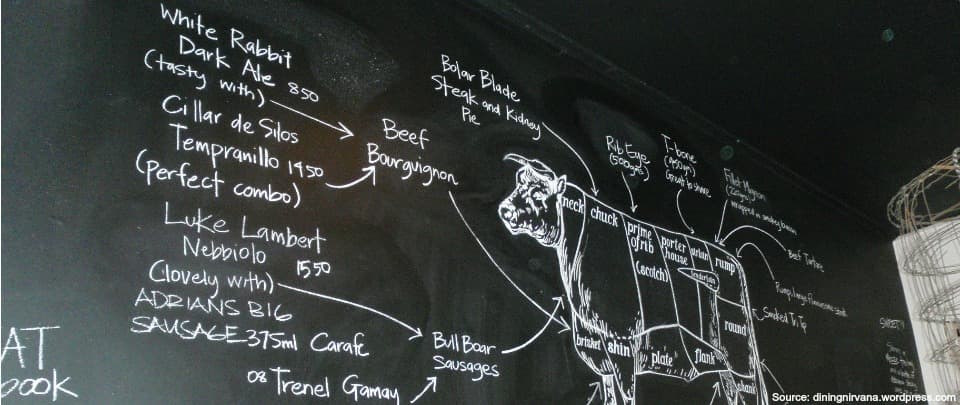 White Rabbit
Dark Ale 850
(tasty with)
Cillar de Silos
Tempranillo 1450
(Perfect combo)
Luke Lambert
Nebbiolo 1550
(lovely with)
ADRIANS BIG
SAUSAGE 375ml Carafe
08 Trenel Gamay
AT
BOOK
Beef
Bourguignon
Bull Boar
Sausages
Bolar Blade
Steak and Kidney
Pie
Rib Eye
(500gms)
T-bone
(450gm)
Great to share
Fillet Mignon
wrapped in smokey bacon
Smoked Tri Tip
neck
chuck
prime
of rib
(scotch)
porter
house
sirloin
rump
tenderloin
round
brisket
shin
plate
flank
shank
Source: diningnirvana.wordpress.com